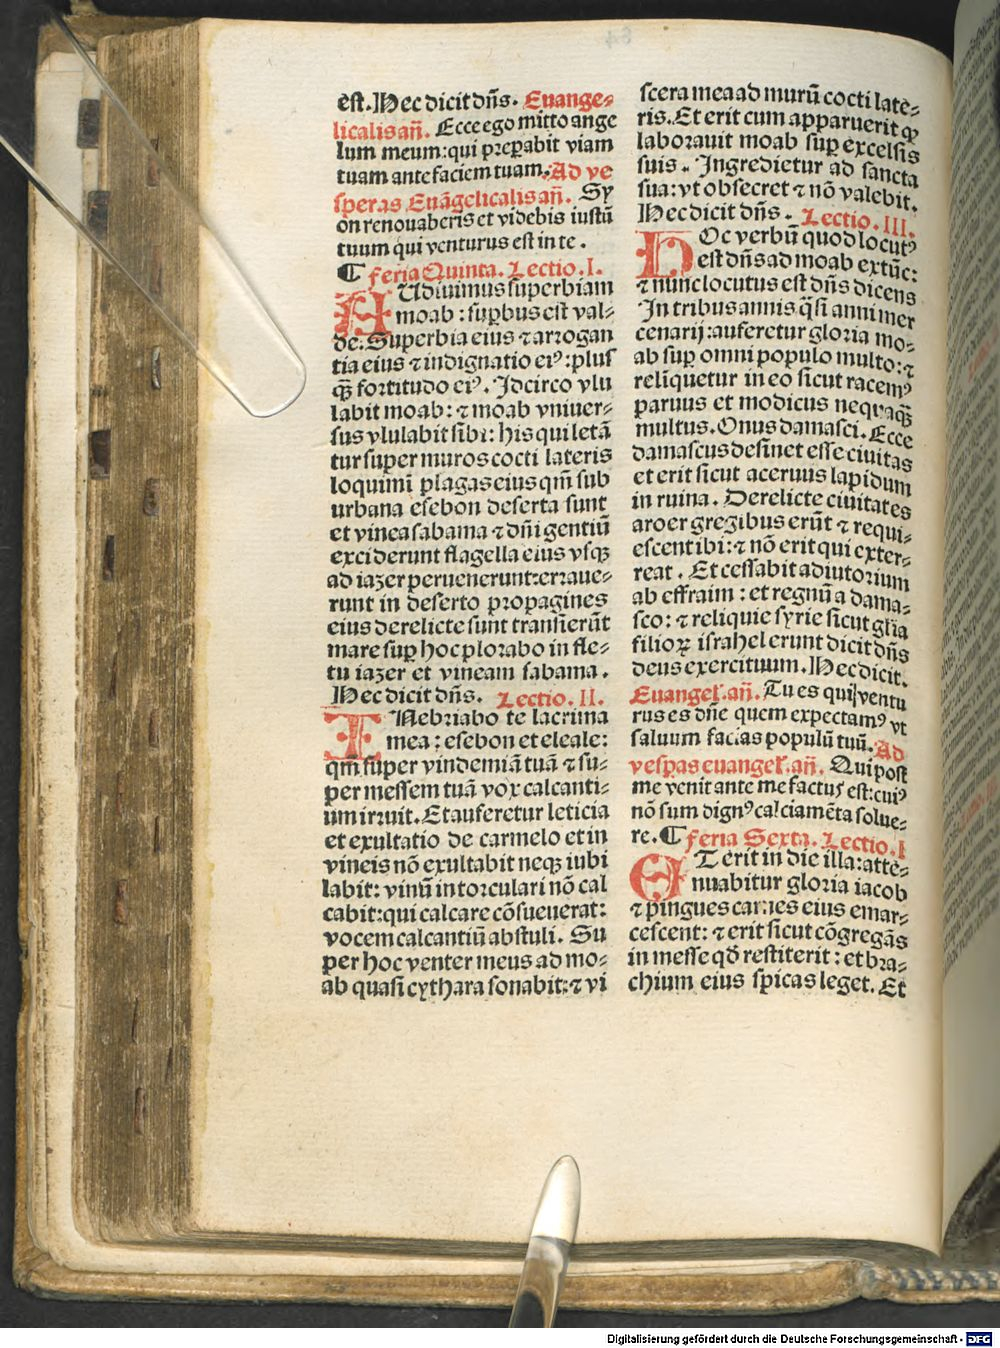 est. Hec dicit dn̄s. Euange⸗
licalis an̄. Ecce ego mitto ange
lum meum: qui prep̱arabit viam
tuam ante faciem tuam. Ad ve
speras Euāgelicalis an̄. Sy
on renouaberis et videbis iustū
tuum qui venturus est in te.
¶ feria Quinta. Lectio. I.
AUdiuimus superbiam
moab: suꝑbus est val⸗
de. Superbia eius ⁊ arrogan
tia eius ⁊ indignatio eiꝰ: plus
qꝫ̄ fortitudo eiꝰ. Idcirco vlu
labit moab: ⁊ moab vniuer⸗
sus vlulabit sibi: his qui letā
tur super muros cocti lateris
loquimī plagas eius qm̄ sub
urbana esebon deserta sunt
et vinea sabama ⁊ dn̄i gentiū
exciderunt flagella eius vsqꝫ
ad iazer peruenerunt: erraue⸗
runt in deserto propagines
eius derelicte sunt transierūt
mare suꝑ hoc plorabo in fle⸗
tu iazer et vineam sabama.
Hec dicit dn̄s. Lectio. II.
INebriabo te lacrima
mea: esebon et eleale:
qm̄ super vindemiā tuā ⁊ su⸗
per messem tuā vox calcanti⸗
um irruit. Et auferetur leticia
et exultatio de carmelo et in
vineis nō exultabit neqꝫ iubi
labit: vinū in torculari nō cal
cabit: qui calcare cōsueuerat:
vocem calcantiū abstuli. Su
per hoc venter meus ad mo⸗
ab quasi cythara sonabit: ⁊ vi
scera mea ad murū cocti late⸗
ris. Et erit cum apparuerit ꝙ
laborauit moab suꝑ excelsis
suis. Ingredietur ad sancta
sua: vt obsecret ⁊ nō valebit.
Hec dicit dn̄s. Lectio. III.
HOc verbū quod locutꝰ
est dn̄s ad moab ex tūc:
⁊ nunc locutus est dn̄s dicens
In tribus annis q̄si anni mer
cenarij: auferetur gloria mo⸗
ab suꝑ omni populo multo: ⁊
relīquetur in eo sicut racemꝰ
paruus et modicus nequaqꝫ̄
multus. Onus damasci. Ecce
damascus desinet esse ciuitas
et erit sicut aceruus lapidum
in ruina. Derelicte ciuitates
aroer gregibus erūt ⁊ requi⸗
escent ibi: ⁊ nō erit qui exter⸗
reat. Et cessabit adiutorium
ab effraim: et regnū a dama⸗
sco: ⁊ reliquie syrie sicut gl̄ia
filioꝝ israhel erunt dicit dn̄s
deus exercituum. Hec dicit.
Euangel. an̄. Tu es qui ventu
rus es dn̄e quem expectamꝰ vt
saluum facias populū tuū. Ad
vesꝑas euangel. an̄. Qui post
me venit ante me factus est: cuiꝰ
nō sum dignꝰ calciamēta solue⸗
re. ¶ feria Sexta. Lectio. I
ET erit in die illa: atte⸗
nuabitur gloria iacob
⁊ pingues carnes eius emar⸗
cescent: ⁊ erit sicut cōgregās
in messe qđ restiterit: et bra⸗
chium eius spicas leget. Et
Digitalisierung gefördert durch die Deutsche Forschungsgemeinschaft - DFG